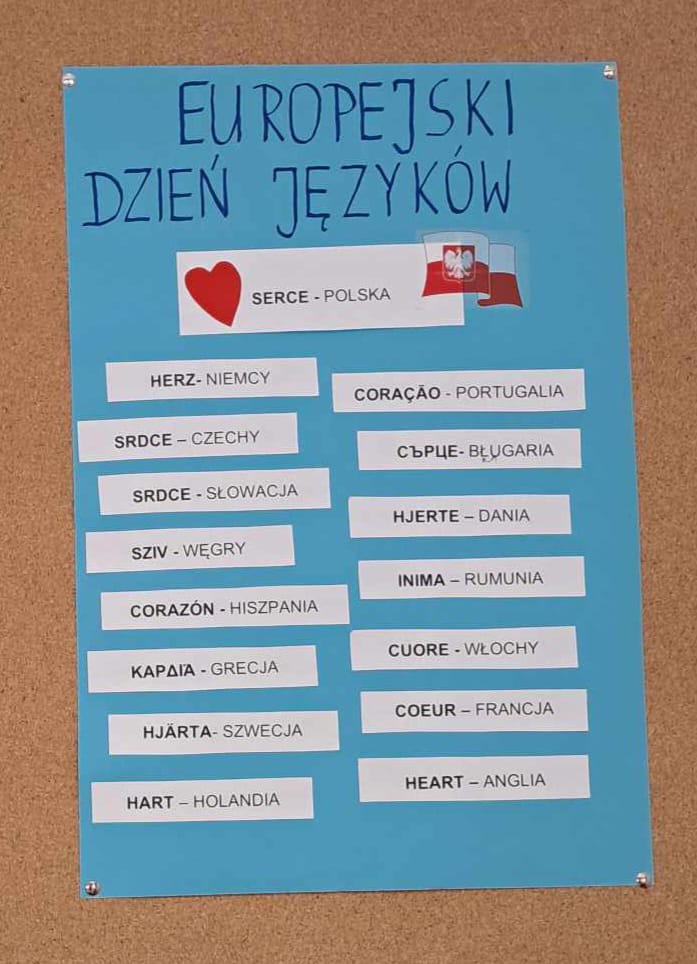 EUROPEJSKI
DZIEŃ JĘZYKÓW
SERCE - POLSKA
HERZ- NIEMCY
SRDCE – CZECHY
SRDCE - SŁOWACJA
SZIV - WĘGRY
CORAZÓN - HISZPANIA
ΚΑΡΔΙΆ - GRECJA
HJÄRTA- SZWECJA
HART – HOLANDIA
CORAÇÃO - PORTUGALIA
СЪРЦЕ- BŁUGARIA
HJERTE – DANIA
INIMA – RUMUNIA
CUORE - WŁOCHY
COEUR – FRANCJA
HEART – ANGLIA